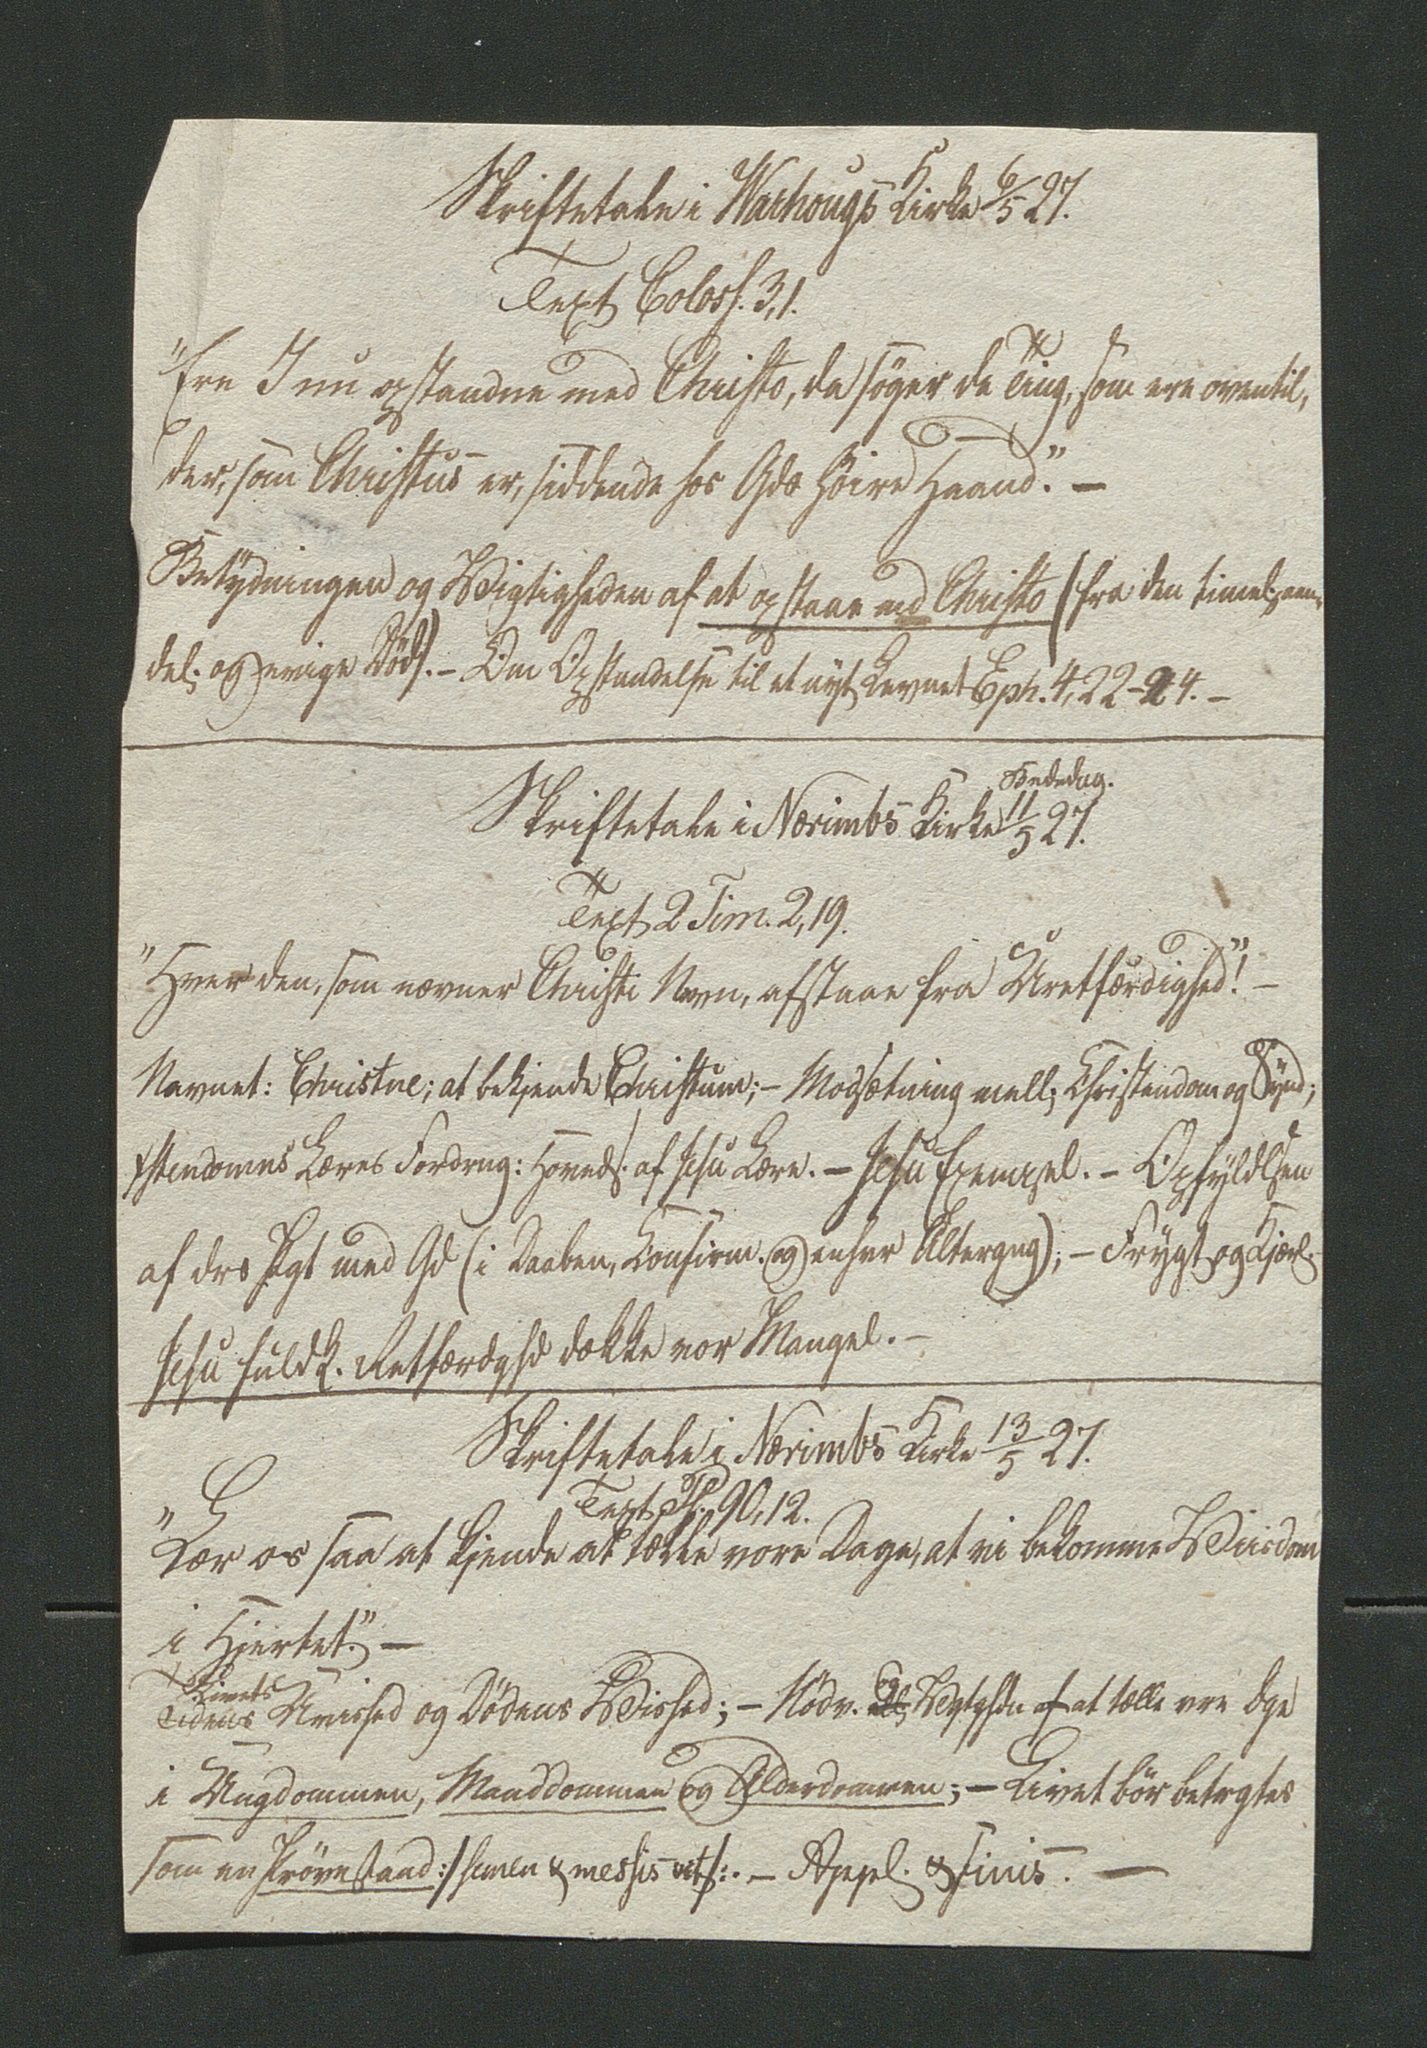 Skriftetale i Warhougs Kirke 6/5 27.
Text Coloss. 3,1.
"Ere I nu opstandne med Christo, da söger de Ting, som ere oventil,
der, som Christus er, siddende hos Gds höire Haand". –
Betydningen og Wigtigheden af at opstaae md Christo (fra den timel., aan-
del. og evige Död). – Om Opstandelse til et nyt Levnet Eph. 4, 22–24. –
Bededag.
Skriftetale i Nærimbs Kirke 11/5 27.
Text 2 Tim. 2,19.
"Hver den, som nævner Christi Navn, afstaae fra Uretfærdighed"! –
Navnet: Christne; at bekjende Christum; – Modsætning mell; Christendom og Synd;
Xstendomns Læres Fordrng: Hoveds. af Jesu Lære. – Jesu Exempel. – Opfyldlsen
af drs Pagt med Gd (i Daaben, Confirm. og enhver Altergng); – Frygt og Kjærl.
Jesu fuldk. Retfærdghd dække vor Mangel. –
Skriftetale i Nærimbs Kirke 13/5 27.
Text Ps. 90, 12.
"Lær os saa at kjende at tælle vore Dage, at vi bekomme Wiisdom
i Hjertet". –
Livets
Tidens Uvished og Dödens Wished; – Nödv. og af at tælle vre Dge
i Ungdommen, Manddommen og Alderdommen; – Livet bör betrgtes
som en Prövestand :/ semen & messis vit /:. – Appl. & Finis. –